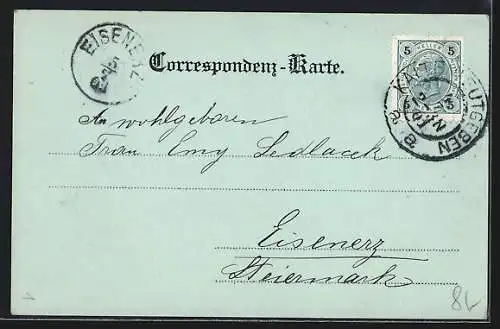 EISENERZ
Correspondenz-Karte.
5 HELLER 5
KALTENLEUTGEBEN
An wohlgeboren
Frau Emy Sedlacek
Eisenerz
Steiermark